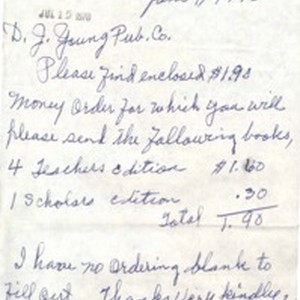 JUL 15 1970
D. J. Young Pub. Co.
Please find enclosed $1.90
Money Order for which you will
please send the following books,
4 Teachers edition $1.60
1 Scholars edition .30
Total 1.90
I have no Ordering blank to
fill out. Thanks Very kindly,